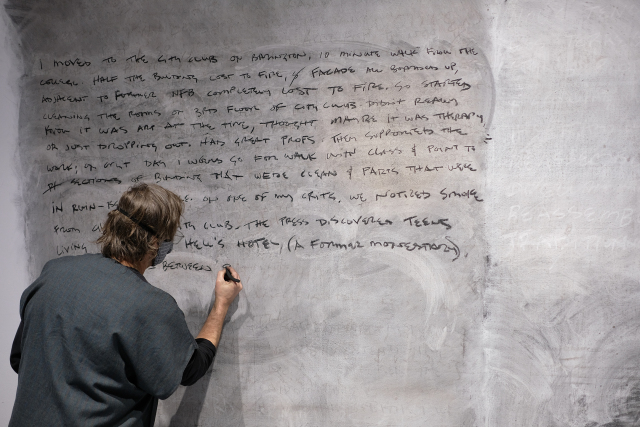 I MOVED TO THE CITY CLUB ON BARRINGTON, 10 MINUTE WALK FROM THE
COLLEGE. HALF THE BUILDING LOST TO FIRE, & FACADE ALL BOARDED UP,
ADJACENT TO FORMER NFB COMPLETELY LOST TO FIRE. SO STARTED
CLEANING THE ROOMS ON 3RD FLOOR OF CITY CLUB. DIDN'T REALLY
IT WAS ART AT THE TIME, THOUGHT MAYBE IT WAS THERAPY
OR JUST DROPPING OUT. HAD GREAT PROFS. THEY SUPPORTED THE
WORK, ON CRIT DAY I WOULD GO FOR WALK WITH CLASS & POINT TO
SECTIONS OF BUILDING THAT WERE CLEAN & PARTS THAT WERE
IN RUIN ON ONE OF MY CRITS, WE NOTICED SMOKE
FROM CLUB. THE PRESS DISCOVERED TEENS
LIVING "HELL'S HOTEL" (A FORMER MONESTARY),
BETWEEN